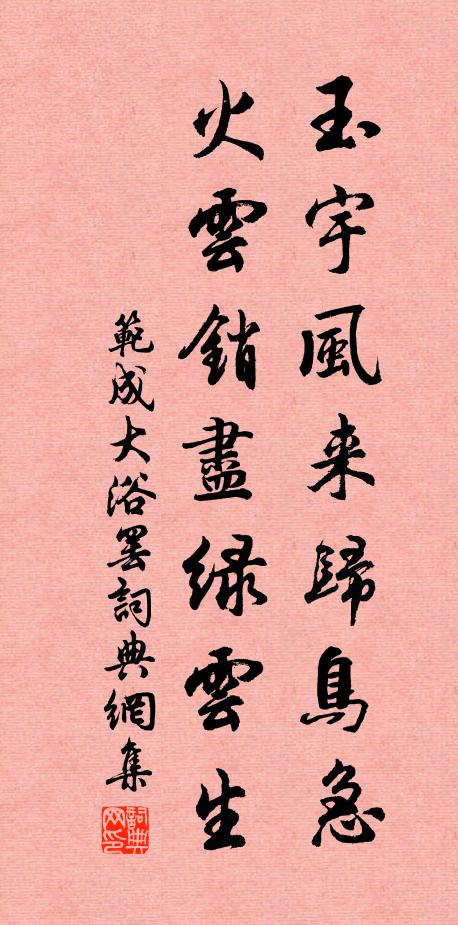 玉宇風来歸鳥急
火雲銷盡緑雲生
範成大浴罷詞典網集
詞典網印